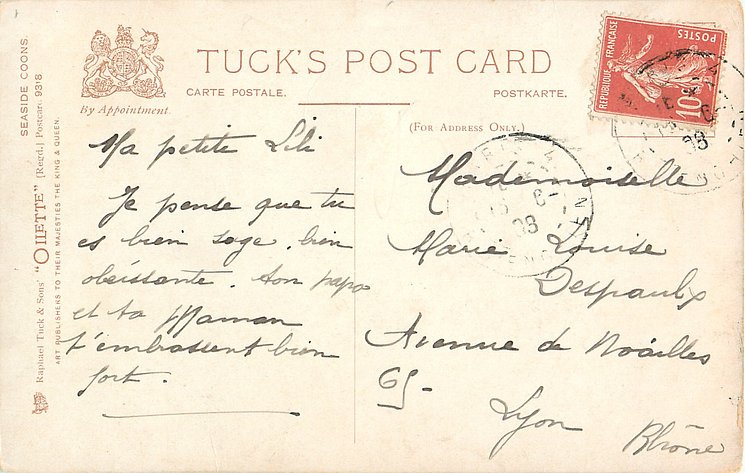 SEASIDE COONS.
Raphael Tuck & Sons' "OILETTE" [Regd.] Postcard 9318
ART PUBLISHERS TO THEIR MAJESTIES THE KING & QUEEN.
By Appointment.
TUCK'S POST CARD
CARTE POSTALE.
POSTKARTE.
(FOR ADDRESS ONLY.)
REPUBLIQUE FRANÇAISE
POSTES
10c
08
08
Ma petite Lili
Je pense que tu
es bien sage, bien
obéissante. ton papa
et ta Maman
t'embrassent bien
fort.
Mademoiselle
Marie Louise
Despaulx
Avenue de Noailles
65
Lyon
Rhône